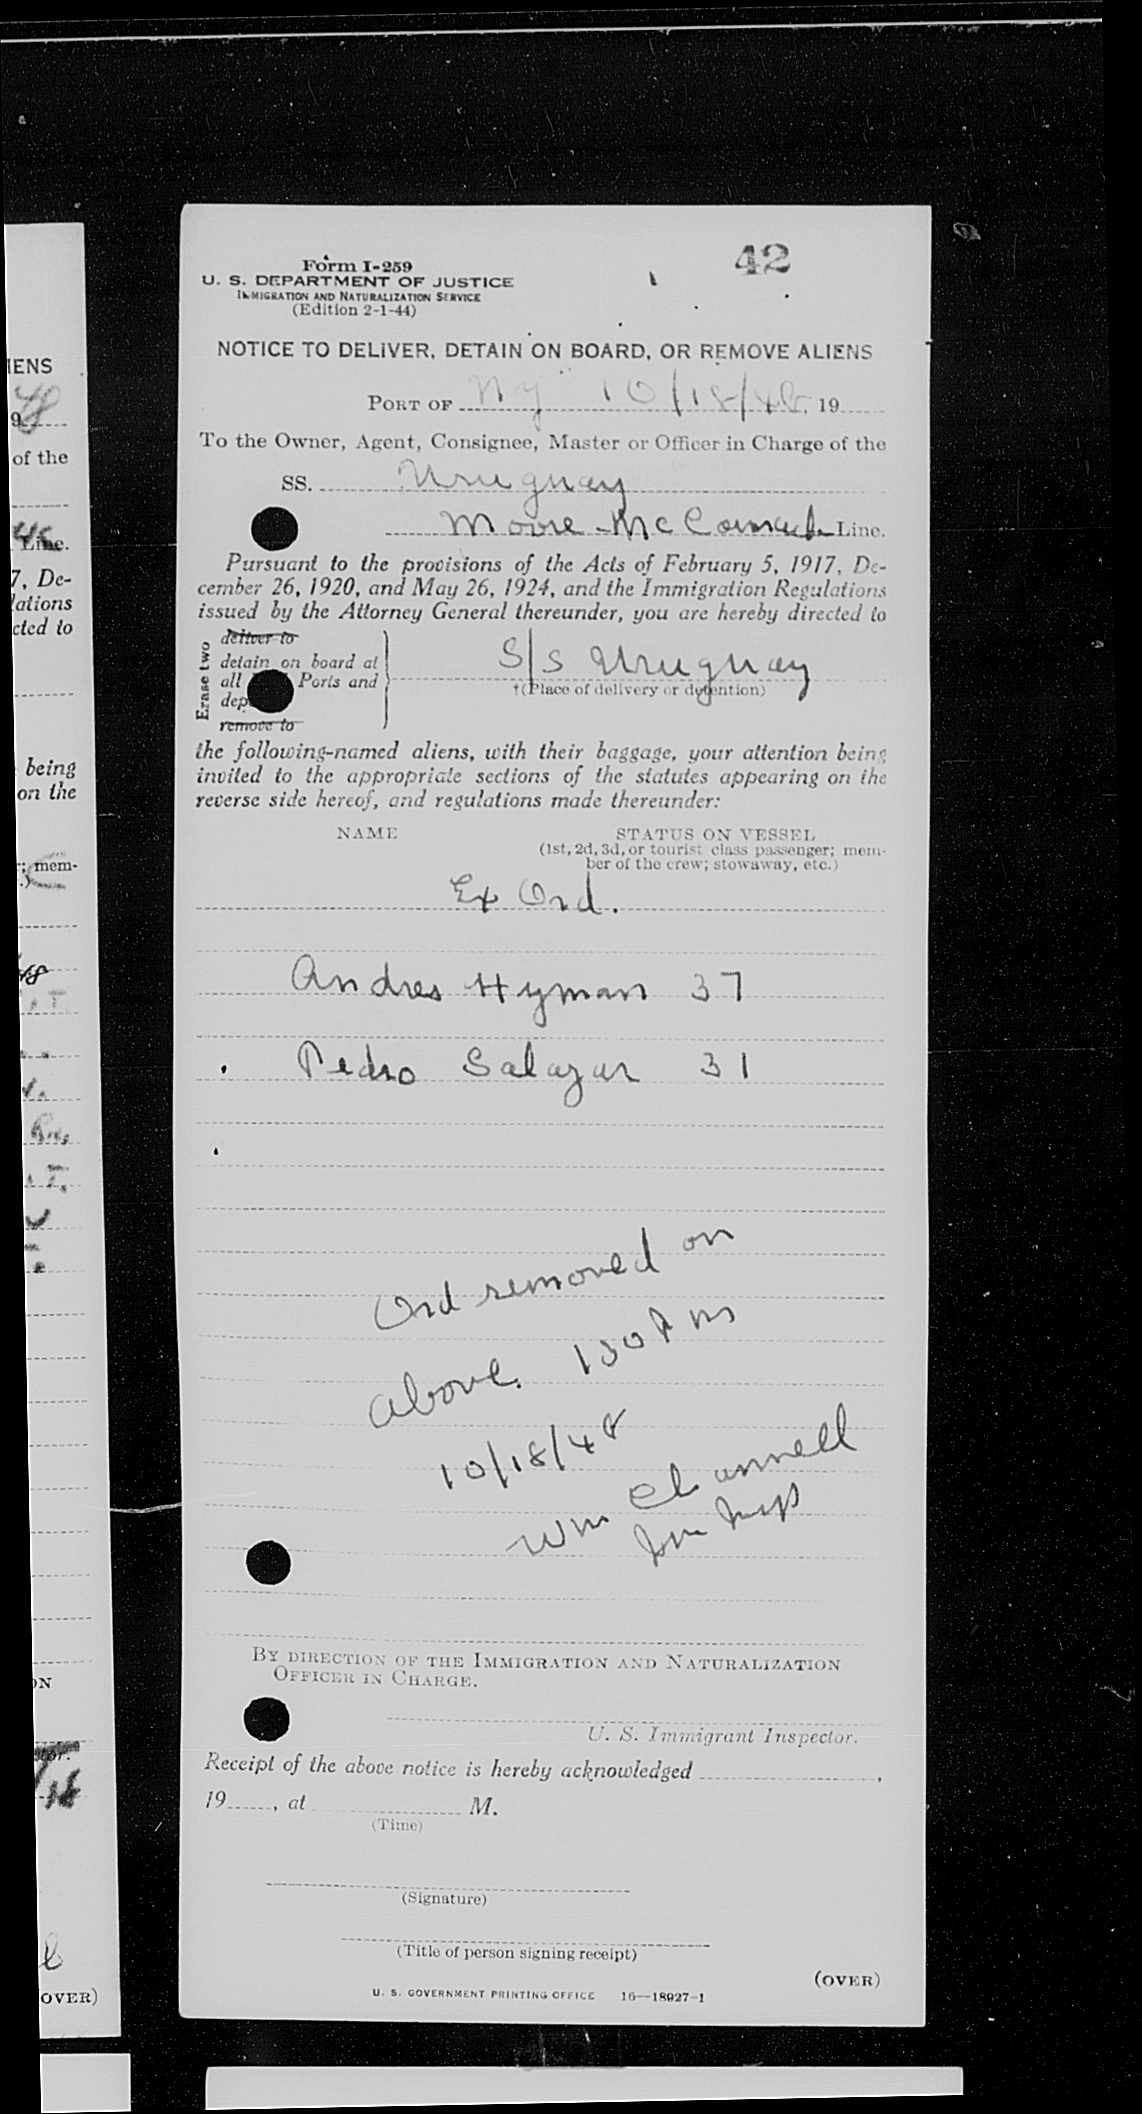 42
Form I-259
U. S. DEPARTMENT OF JUSTICE
IMMIGRATION AND NATURALIZATION SERVICE
(Edition 2-1-44)
NOTICE TO DELIVER, DETAIN ON BOARD, OR REMOVE ALIENS
PORT OF NY 10/18/48, 19
To the Owner, Agent, Consignee, Master or Officer in Charge of the
SS. Uruguay
Moore-McCormack Line.
Pursuant to the provisions of the Acts of February 5, 1917, De-
cember 26, 1920, and May 26, 1924, and the Immigration Regulations
issued by the Attorney General thereunder, you are hereby directed to
Erase two
deliver to
detain on board at
all Ports and
dep
remove to
S/S Uruguay
†(Place of delivery or detention)
the following-named aliens, with their baggage, your attention being
invited to the appropriate sections of the statutes appearing on the
reverse side hereof, and regulations made thereunder:
NAME STATUS ON VESSEL
(1st, 2d, 3d, or tourist class passenger; mem-
ber of the crew; stowaway, etc.)
Ex Ord.
Andres Hyman 37
Pedro Salazar 31
Ord removed on
above. 130 Pm
10/18/48
Wm Channell
Imm Insp
BY DIRECTION OF THE IMMIGRATION AND NATURALIZATION
OFFICER IN CHARGE.
U. S. Immigrant Inspector.
Receipt of the above notice is hereby acknowledged ,
19 , at M.
(Time)
(Signature)
(Title of person signing receipt)
(OVER)
U. S. GOVERNMENT PRINTING OFFICE 16—18927-1
IENS
of the
Line.
7, De-
lations
cted to
being
on the
; mem-
OVER)